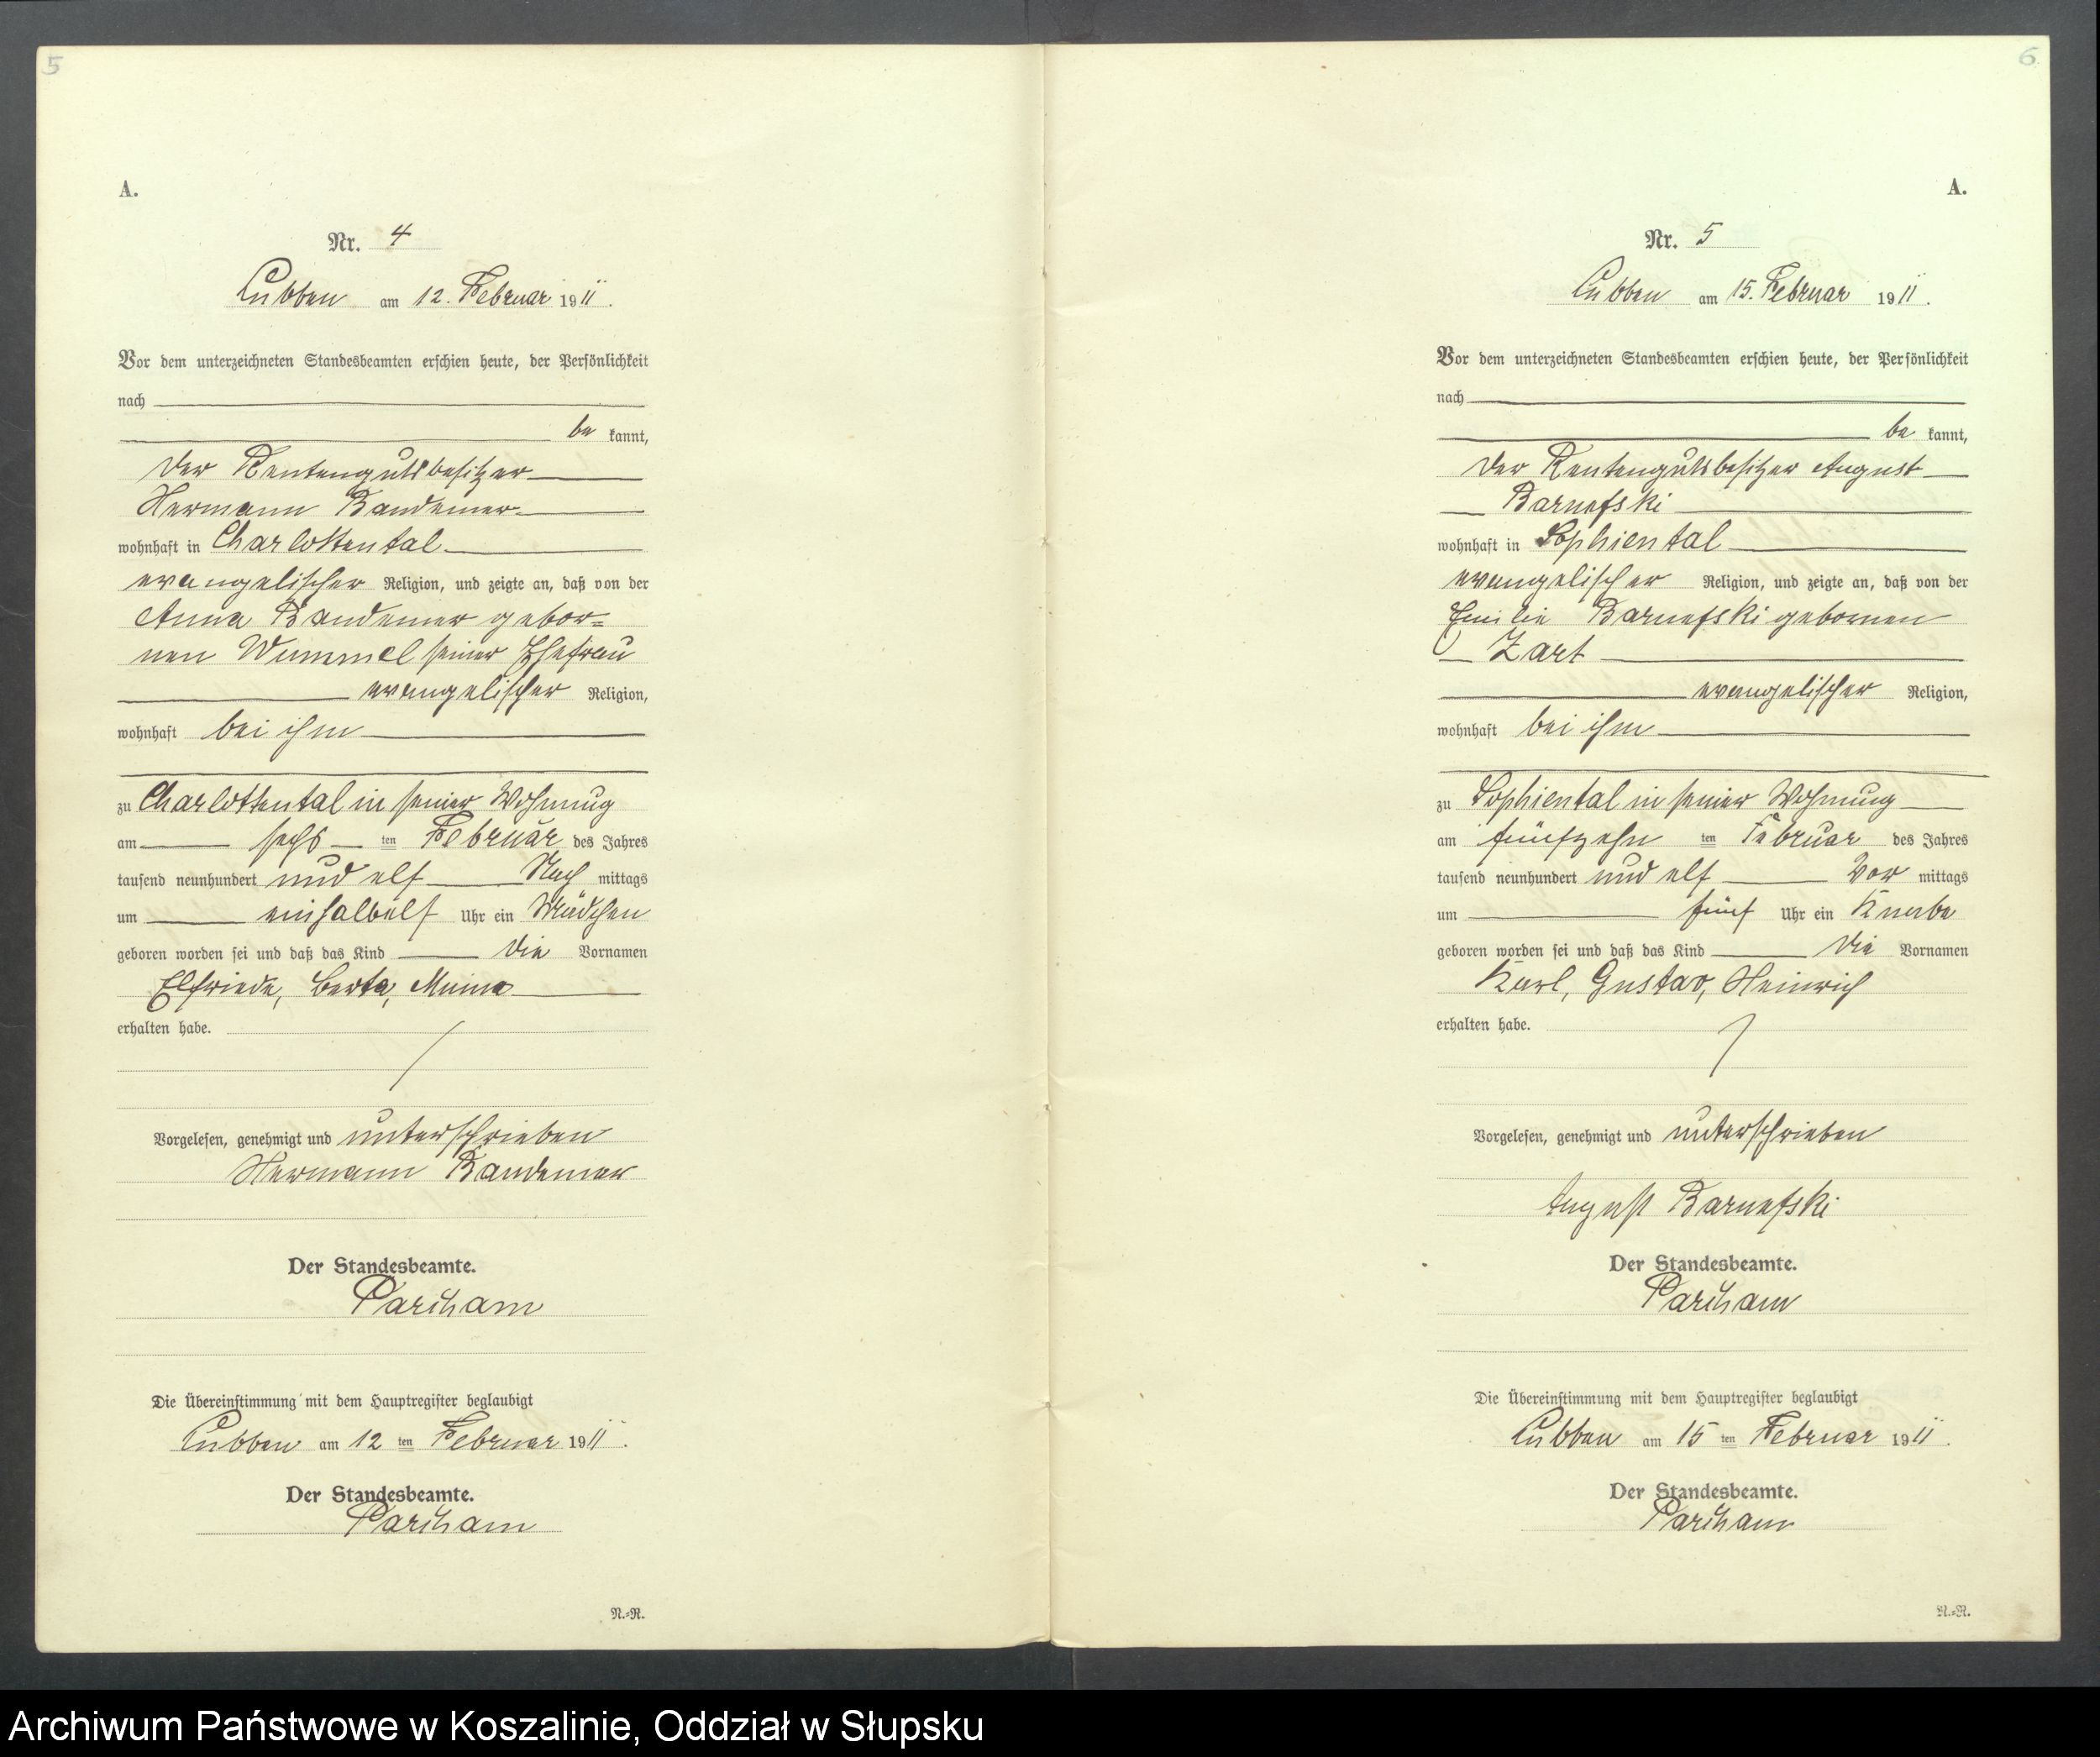 5
A.
Nr. 4
Lubben am 12. Februar 1911.
Vor dem unterzeichneten Standesbeamten erschien heute, der Persönlichkeit
nach
be kannt,
der Rentengutsbesitzer
Hermann Bandemer
wohnhaft in Charlottental
evangelischer Religion, und zeigte an, daß von der
Anna Bandemer gebor=
nen Wummel seiner Ehefrau
evangelischer Religion,
wohnhaft bei ihm
zu Charlottental in seiner Wohnung
am sechs ten Februar des Jahres
tausend neunhundert und elf Nach mittags
um einhalbelf Uhr ein Mädchen
geboren worden sei und daß das Kind die Vornamen
Elfriede, Berta, Minna
erhalten habe.
Vorgelesen, genehmigt und unterschrieben
Hermann Bandemer
Der Standesbeamte.
Die Übereinstimmung mit dem Hauptregister beglaubigt
Lubben am 12 ten Februar 1911.
Der Standesbeamte.
N.=R.
6
A.
Nr. 5
Lubben am 15. Februar 1911.
Vor dem unterzeichneten Standesbeamten erschien heute, der Persönlichkeit
nach
be kannt,
der Rentengutsbesitzer August
Barnefski
wohnhaft in Sophiental
evangelischer Religion, und zeigte an, daß von der
Emilie Barnefski gebornen
Zart
evangelischer Religion,
wohnhaft bei ihm
zu Sophiental in seiner Wohnung
am fünfzehn ten Februar des Jahres
tausend neunhundert und elf Vor mittags
um fünf Uhr ein Knabe
geboren worden sei und daß das Kind die Vornamen
Karl, Gustav, Heinrich
erhalten habe.
Vorgelesen, genehmigt und unterschrieben
August Barnefski
Der Standesbeamte.
Die Übereinstimmung mit dem Hauptregister beglaubigt
Lubben am 15 ten Februar 1911.
Der Standesbeamte.
N.=R.
Archiwum Państwowe w Koszalinie, Oddział w Słupsku